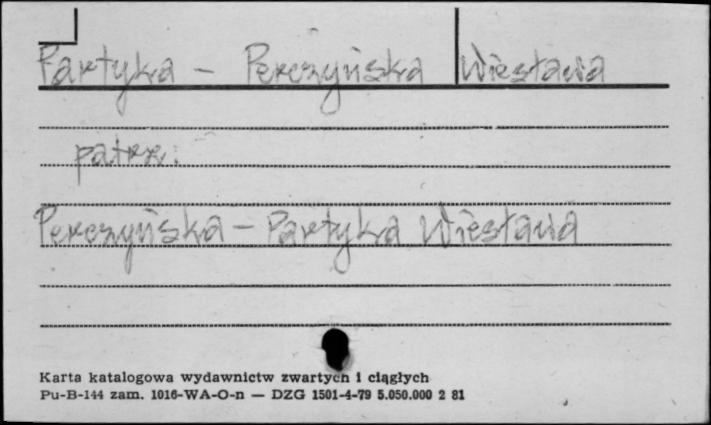 Partyka - Perczyńska Wiesława
patrz:
Perczyńska - Partyka Wiesława
Karta katalogowa wydawnictw zwartych i ciągłych
Pu-B-144 zam. 1016-WA-O-n — DZG 1501-4-79 5.050.000 2 81